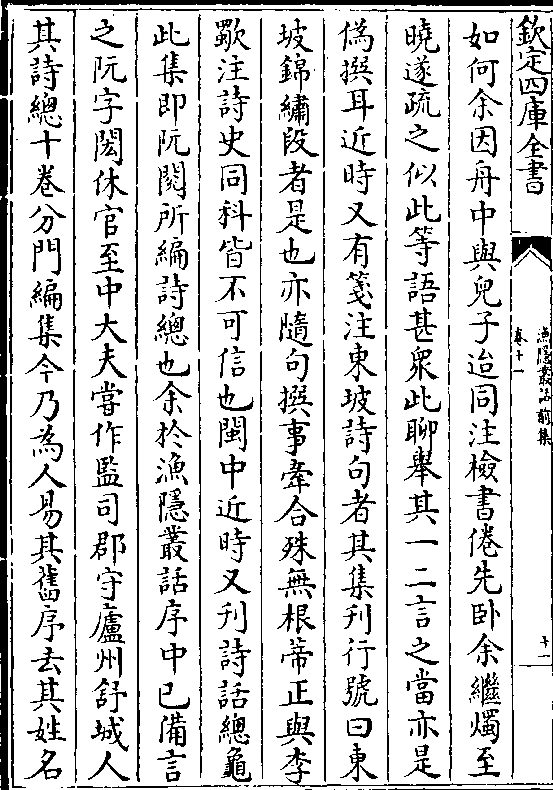 欽定四庫全書
漁隱叢話前集
卷十一
十一
如何余因舟中與兒子迨同注檢書倦先卧余繼燭至
曉遂疏之似此等語甚衆此聊舉其一二言之當亦是
偽撰耳近時又有箋注東坡詩句者其集刊行號曰東
坡錦繡段者是也亦隨句撰事牽合殊無根蒂正與李
歜注詩史同科皆不可信也閩中近時又刊詩話總龜
此集即阮閱所編詩總也余於漁隱叢話序中已備言
之阮字閎休官至中大夫嘗作監司郡守廬州舒城人
其詩總十卷分門編集今乃為人易其舊序去其姓名